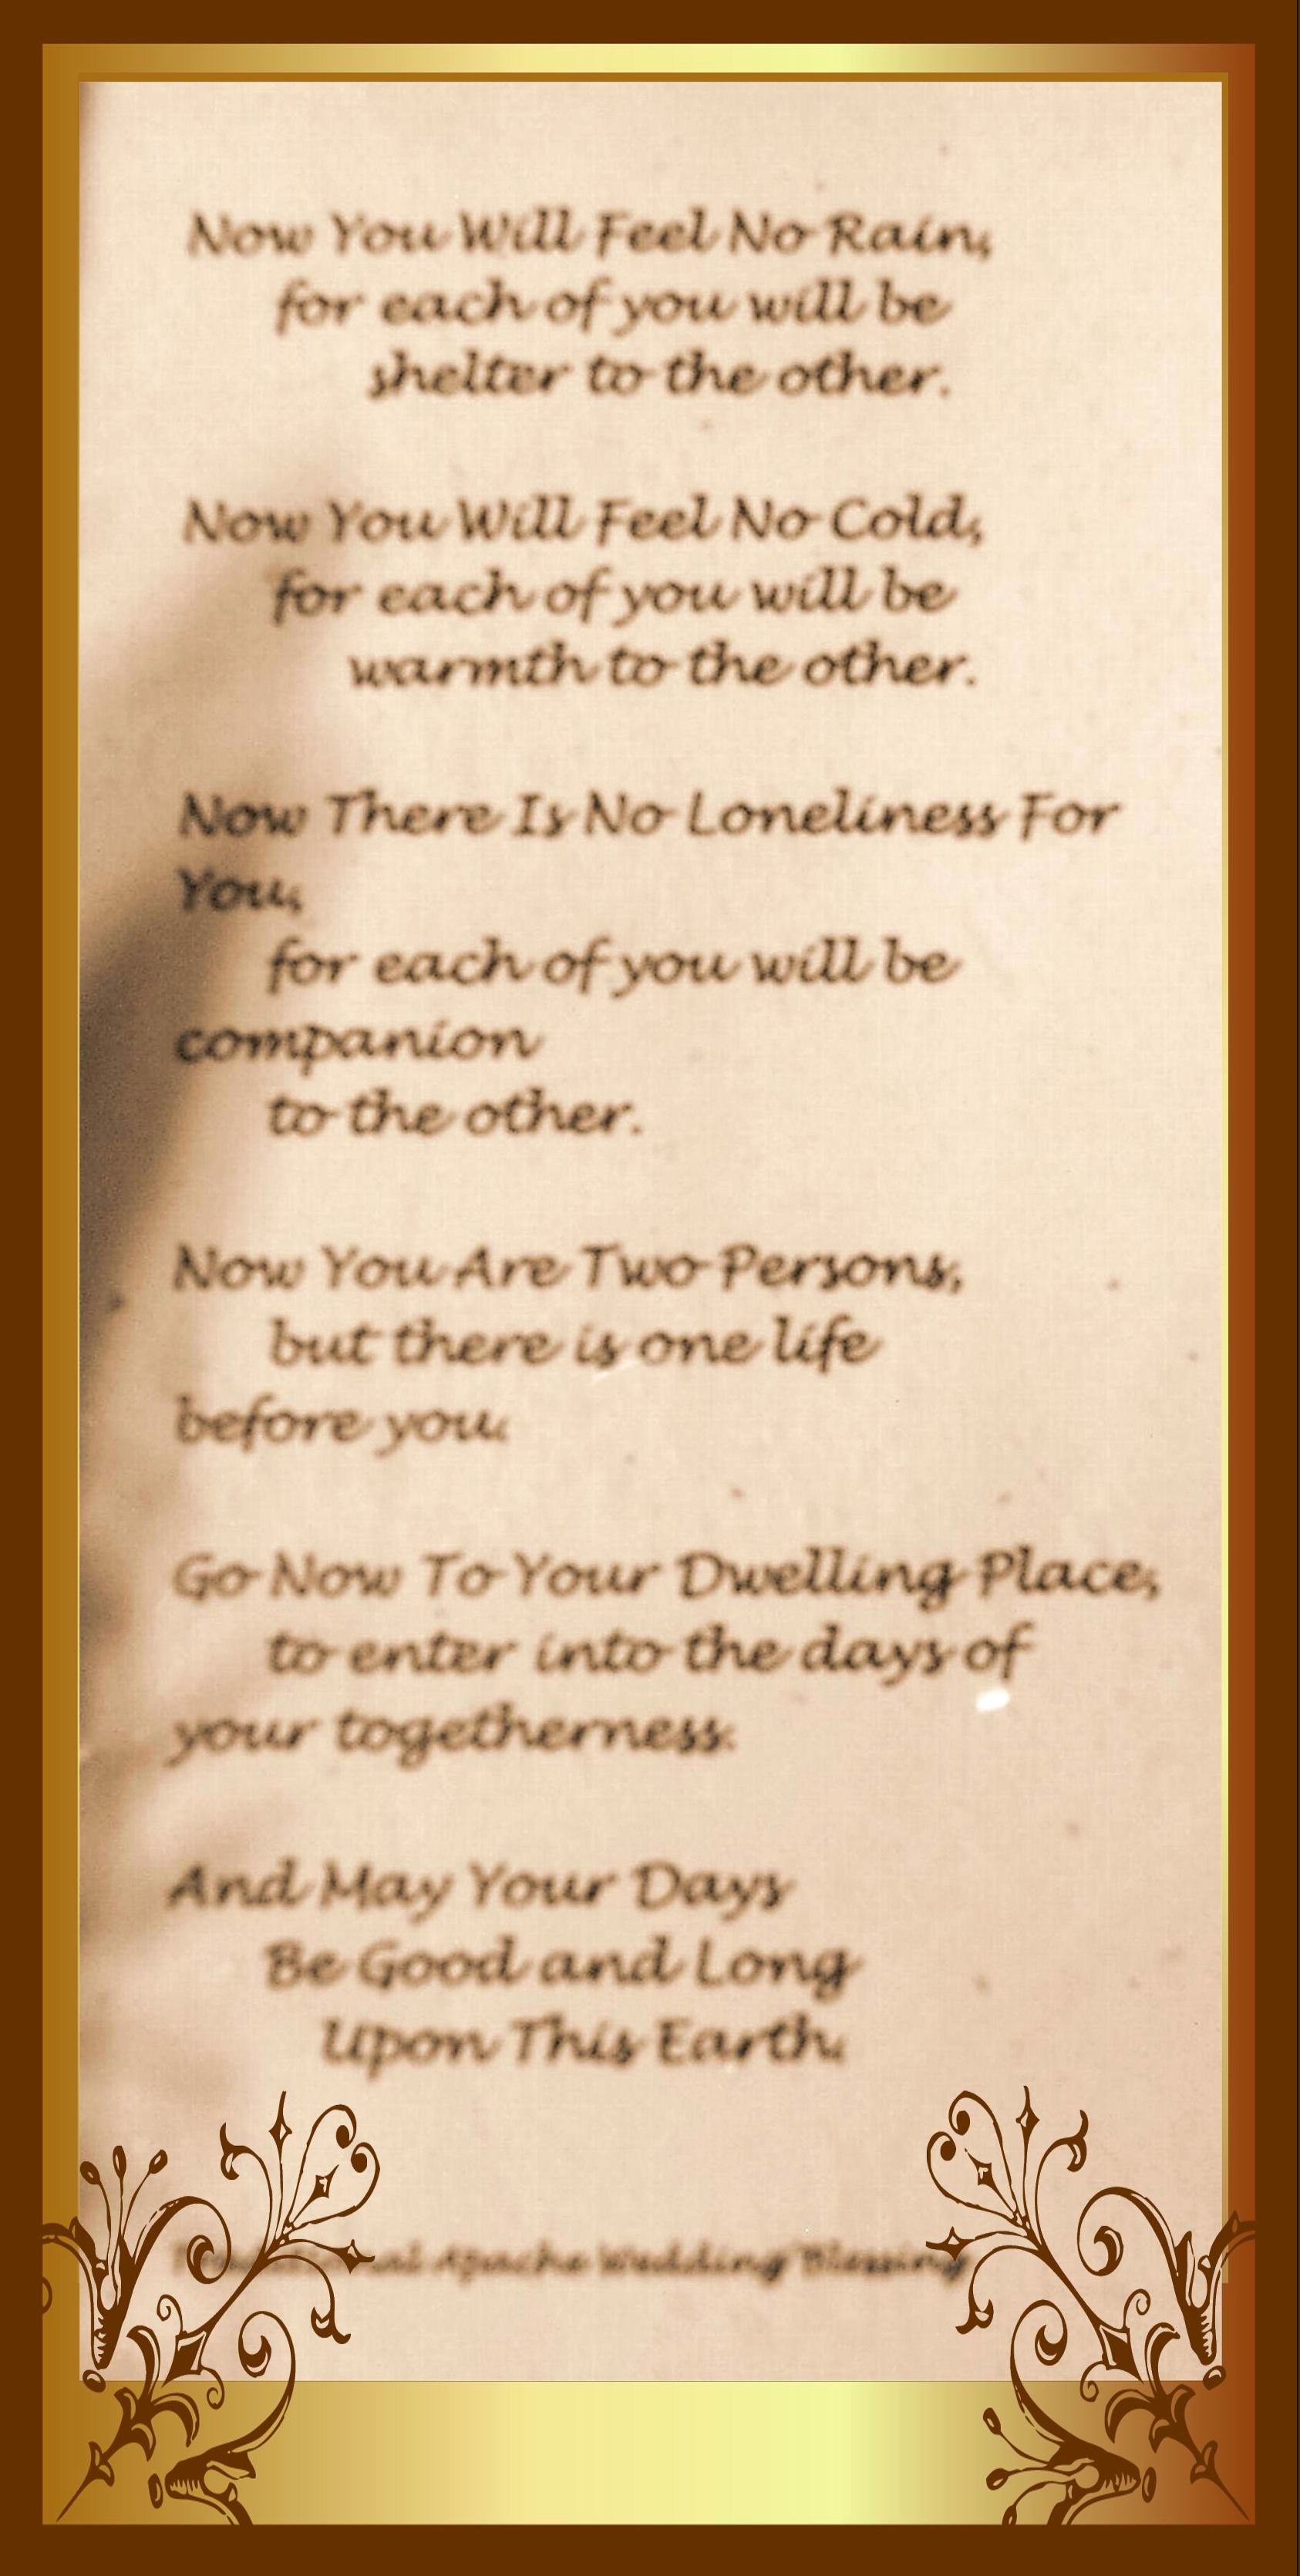 Now You Will Feel No Rain,
for each of you will be
shelter to the other.
Now You Will Feel No Cold,
for each of you will be
warmth to the other.
Now There Is No Loneliness For
You,
for each of you will be
companion
to the other.
Now You Are Two Persons,
but there is one life
before you.
Go Now To Your Dwelling Place,
to enter into the days of
your togetherness.
And May Your Days
Be Good and Long
Upon This Earth.
Apache Wedding Blessing